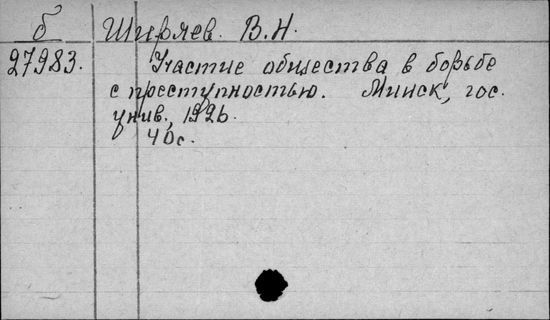 б Ширяев. В.Н.
27983. Участие общества в борьбе
с преступностью. Минск, гос.
унив., 1926.
40с.